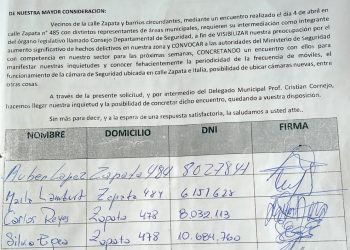 DE NUESTRA MAYOR CONSIDERACIÓN:
Vecinos de la calle Zapata y barrios circundantes, mediante un encuentro realizado el día 4 de abril en
calle Zapata nº 485 con distintos representantes de áreas municipales, requieren su intermediación como integrante
del órgano legislativo llamado Consejo Departamental de Seguridad, a fin de VISIBILIZAR nuestra preocupación por el
aumento significativo de hechos delictivos en nuestra zona y CONVOCAR a las autoridades del Ministerio de Seguridad
con competencia en nuestro sector para las próximas semanas, CONCRETANDO un encuentro con ellos para
manifestar nuestras inquietudes y conocer fehacientemente la periodicidad de la frecuencia de móviles, al
funcionamiento de la cámara de Seguridad ubicada en calle Zapata e Italia, posibilidad de ubicar cámaras nuevas, entre
otras cosas.
A través de la presente solicitud, y por intermedio del Delegado Municipal Prof. Cristian Cornejo,
hacemos llegar nuestra inquietud y la posibilidad de concretar dicho encuentro, quedando a nuestra disposición.
Sin más por decir, y a la espera de una respuesta satisfactoria, la saludamos a usted atte..
NOMBRE DOMICILIO DNI FIRMA
Ruben Lopez Zapata 484
Maria Lambert Zapata 484 6151628
Carlos Reyes Zapata 478 8.032.113
Silvia Zapata 478 10.684.760